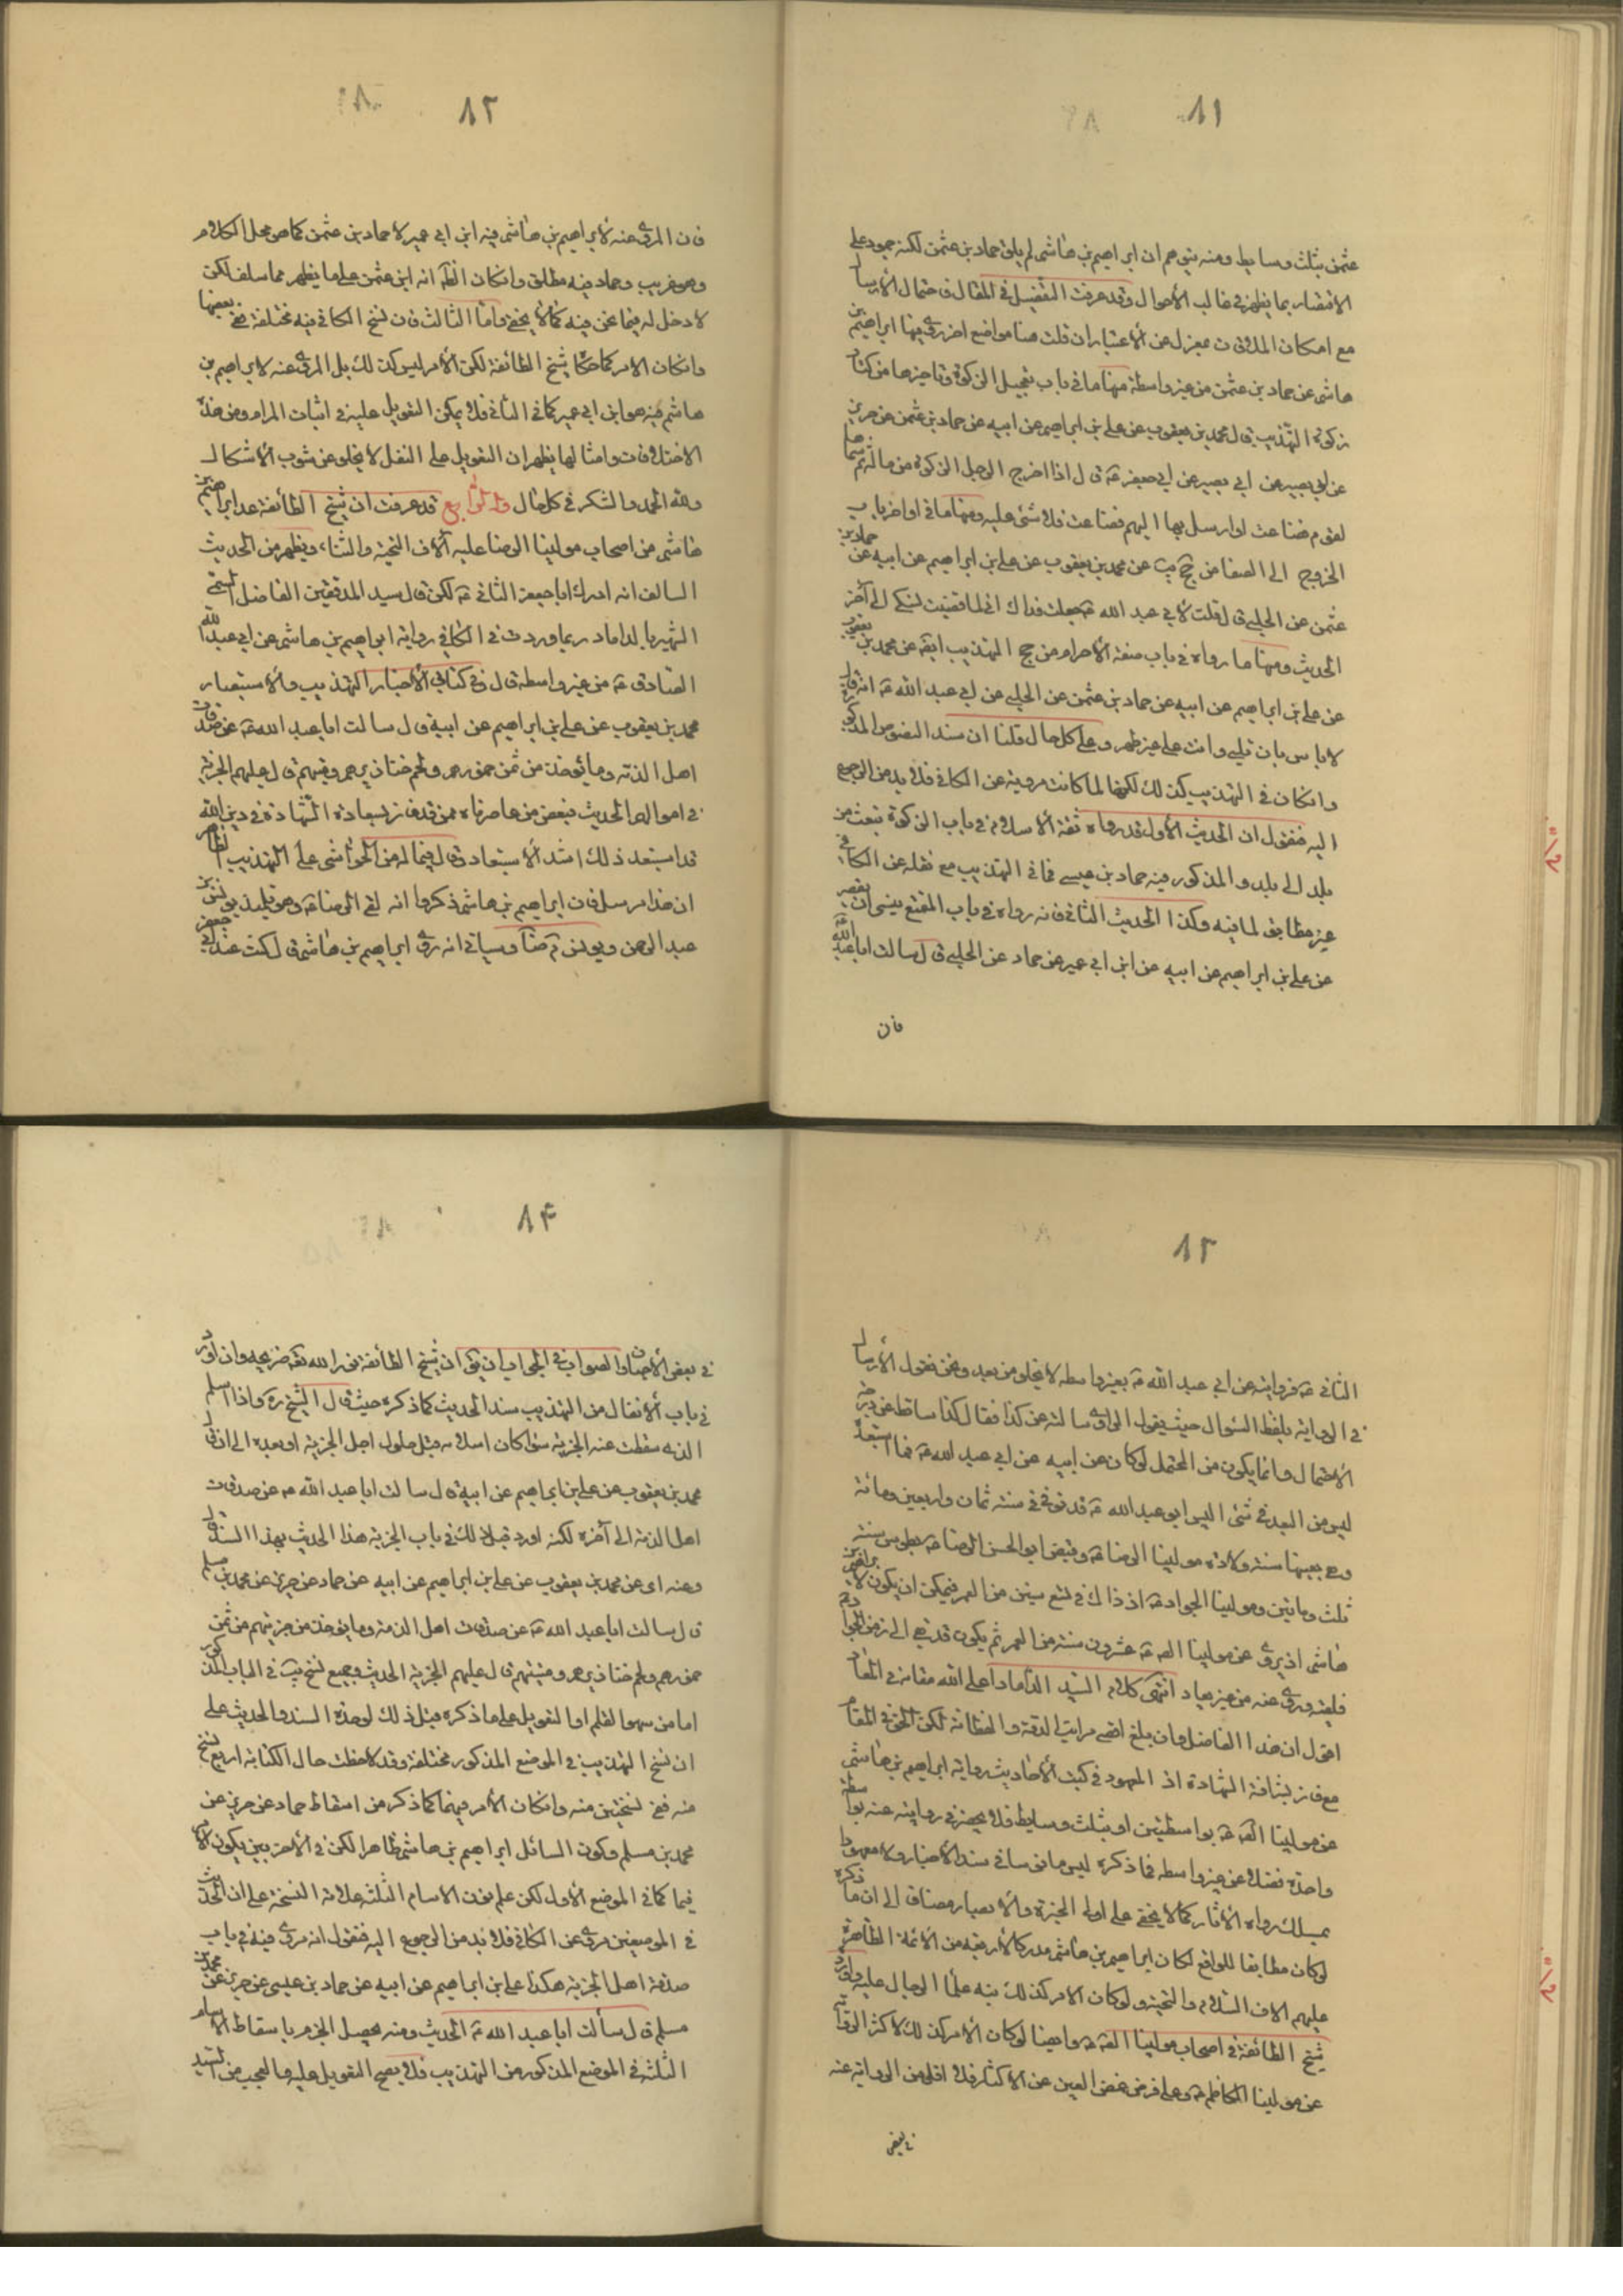 ١١
عثمن بثلث وسايط ومنه يتوهم ان ابراهيم بن هاشم لم يلق حماد بن عثمن لكنه جمود على
الاقتصار بما يظهر في غالب الأحوال وقد عرفت التفصيل في المقال فاحتمال الأرسال
مع امكان الملاقات بمعزل عن الأعتبار ان قلت هنا مواضع اخر روى فيها ابراهيم بن
هاشم عن حماد بن عثمن من غير واسطة منها ما في باب تعجيل الزكوة وتاخيرها من كتاب
زكوة التهذيب قال محمد بن يعقوب عن علي بن ابراهيم عن ابيه عن حماد بن عثمن عن حريز
عن ابي بصير عن ابي جعفر ع قال اذا اخرج الرجل الزكوة من ماله ثم سماها
لقوم فضاعت او ارسل بها اليهم فضاعت فلا شئ عليه ومنها ما في اواخر باب
الخروج الى الصفا من حج يب عن محمد بن يعقوب عن علي بن ابراهيم عن ابيه عن حماد بن
عثمن عن الحلبي قال قلت لأبي عبد الله ع جعلت فداك اني لما قضيت نسكي الى آخر
الحديث ومنها ما رواه في باب صفة الأحرام من حج التهذيب ايضا عن محمد بن يعقوب
عن علي بن ابراهيم عن ابيه عن حماد بن عثمن عن الحلبي عن ابي عبد الله ع انه قال
لا باس بان تلبي وانت على غير طهر وعلى كل حال قلنا ان سند النصوص المذكورة
وانكان في التهذيب كذلك لكنها لما كانت مروية عن الكافي فلا بد من الرجوع
اليه فنقول ان الحديث الأول قد رواه ثقة الأسلام في باب الزكوة تبعث من
بلد الى بلد والمذكور فيه حماد بن عيسى فما في التهذيب مع نقله عن الكافي
غير مطابق لما فيه وكذا الحديث الثاني فانه رواه في باب المتمتع ينسى ان يقصر
عن علي بن ابراهيم عن ابيه عن ابن ابي عمير عن حماد عن الحلبي قال سالت ابا عبد الله ع
فان
١٢
فان المروي عنه لأبراهيم بن هاشم فيه ابن ابي عمير لا حماد بن عثمن كما هو محل الكلام
وهو غريب وحماد فيه مطلق وانكان الظاهر انه ابن عثمن على ما يظهر مما سلف لكن
لا دخل له فيما نحن فيه كما لا يخفى واما الثالث فان نسخ الكافي فيه مختلفة ففي بعضها
وانكان الأمر كما حكاه شيخ الطائفة لكن الأمر ليس كذلك بل المروي عنه لابراهيم بن
هاشم فيه هو ابن ابي عمير كما في الثاني فلا يمكن التعويل عليه في اثبات المرام ومن هذه
الاختلافات وامثالها يظهر ان التعويل على النقل لا يخلو عن شوب الأشكال
ولله الحمد والشكر في كل حال والرابع قد عرفت ان شيخ الطائفة عد ابراهيم بن
هاشم من اصحاب مولينا الرضا عليه آلاف التحية والثناء ويظهر من الحديث
السالف انه ادرك ابا جعفر الثاني ع لكن قال سيد المدققين الفاضل السمي
الشهير بالداماد ربما وردت في الكافي رواية ابراهيم بن هاشم عن ابي عبد الله
الصادق ع من غير واسطة قال في كتابي الأخبار التهذيب والأستبصار
محمد بن يعقوب عن علي بن ابراهيم عن ابيه قال سالت ابا عبد الله ع عن صدقات
اهل الذمة وما يؤخذ من ثمن خمورهم ولحم خنازيرهم وميتهم قال عليهم الجزية
في اموالهم الحديث فبعض من عاصرناه ممن قد فاز بسعادة الشهادة في دين الله
قد استبعد ذلك اشد الأستبعاد قال فيما له من الحواشي على التهذيب الظاهر
ان هذا مرسل فان ابراهيم بن هاشم ذكروا انه لقي الرضا ع وهو تلميذ يونس بن
عبد الرحمن ويونس من ضا وسياتي انه روى ابراهيم بن هاشم قال كنت عند ابي جعفر
١٣
الثاني ع فروايته عن ابي عبد الله ع بغير واسطه لا يخلو من بعد ونحن نقول الأرسال
في الرواية بلفظ السؤال حيث يقول الراوي سالته عن كذا فقال كذا ساقط عن درجة
الأحتمال وانما يكون من المحتمل لو كان عن ابيه عن ابي عبد الله ع فما استبعده
ليس من البعد في شئ اليس ابو عبد الله ع قد توفي في سنة ثمان واربعين ومائة
وهي بعينها سنة ولادة مولينا الرضا ع وقبض ابو الحسن الرضا ع بطوس سنة
ثلث ومايتين ومولينا الجواد ع اذ ذاك في تسع سنين من العمر فيمكن ان يكون لابراهيم بن
هاشم اذ يروي عن مولينا الصادق ع عشرون سنة من العمر ثم يكون قد بقي الى زمن الجواد ع
فلقيه وروى عنه من غير بعاد انتهى كلام السيد الداماد اعلى الله مقامه في المعاد
اقول ان هذا الفاضل وان بلغ اقصى مراتب الدقة والفطانة لكن الحق في المقام
مع فائز بشرافة الشهادة اذ المعهود في كتب الأحاديث رواية ابراهيم بن هاشم
عن مولينا الصادق ع بواسطتين او بثلث وسايط فلا يحضرني روايته عنه بواسطة
واحدة فضلا عن غير واسطه فما ذكره ليس مانوسا في سند الأخبار ولا معهودا
بمسلك رواة الأثار كما لا يخفى على اولى الخبرة والأبصار ومضافا الى ان ما ذكره
لو كان مطابقا للواقع لكان ابراهيم بن هاشم مدركا لأربعة من الأئمة الطاهرة
عليهم الاف السلام والتحية ولو كان الامر كذلك نبه علماء الرجال عليه واورده
شيخ الطائفة في اصحاب مولينا الصادق ع وايضا لو كان الأمر كذلك لاكثر الرواية
عن مولينا الكاظم ع وعلى فرض غض العين عن الاكثار فلا اقل من الرواية عنه
في بعض
١۴
في بعض الأحيان والصواب في الجواب ان يق ان شيخ الطائفة نور الله تعالى ضريحه وان اورد
في باب الأنفال من التهذيب سند الحديث كما ذكره حيث قال الشيخ ره واذا اسلم
الذمي سقطت عنه الجزية سواء كان اسلامه قبل حلول اجل الجزية او بعده الى ان قال
محمد بن يعقوب عن علي بن ابراهيم عن ابيه قال سالت ابا عبد الله ع عن صدقات
اهل الذمة الى آخره لكنه اورد قبل ذلك في باب الجزية هذا الحديث بهذا السند قال
وعنه اى عن محمد بن يعقوب عن علي بن ابراهيم عن ابيه عن حماد عن حريز عن محمد بن مسلم
قال سالت ابا عبد الله ع عن صدقات اهل الذمة وما يؤخذ من جزيتهم من ثمن
خمورهم ولحم خنازيرهم وميتتهم قال عليهم الجزية الحديث وجميع نسخ يب في الباب المذكور
اما من سهو القلم او التعويل على ما ذكره قبل ذلك لوحدة السند والحديث على
ان نسخ التهذيب في الموضع المذكور مختلفة وقد لاحظت حال الكتابة اربع نسخ
منه ففي نسختين منه وانكان الأمر فيهما كما ذكر من اسقاط حماد عن حريز عن
محمد بن مسلم وكون السائل ابراهيم بن هاشم ظاهرا لكن في الأخريين يكون الأمر
فيها كما في الموضع الأول لكن علم فوق الاسامي الثلثة علامة النسخة على ان الحديث
في الموضعين مروي عن الكافي فلا بد من الرجوع اليه فنقول انه مروي فيه في باب
صدقة اهل الجزية هكذا علي بن ابراهيم عن ابيه عن حماد بن عيسى عن حريز عن محمد بن
مسلم قال سألت ابا عبد الله ع الحديث ومنه يحصل الجزم باسقاط الأسامي
الثلثة في الموضع المذكور من التهذيب فلا يصح التعويل عليه والعجب من السيد